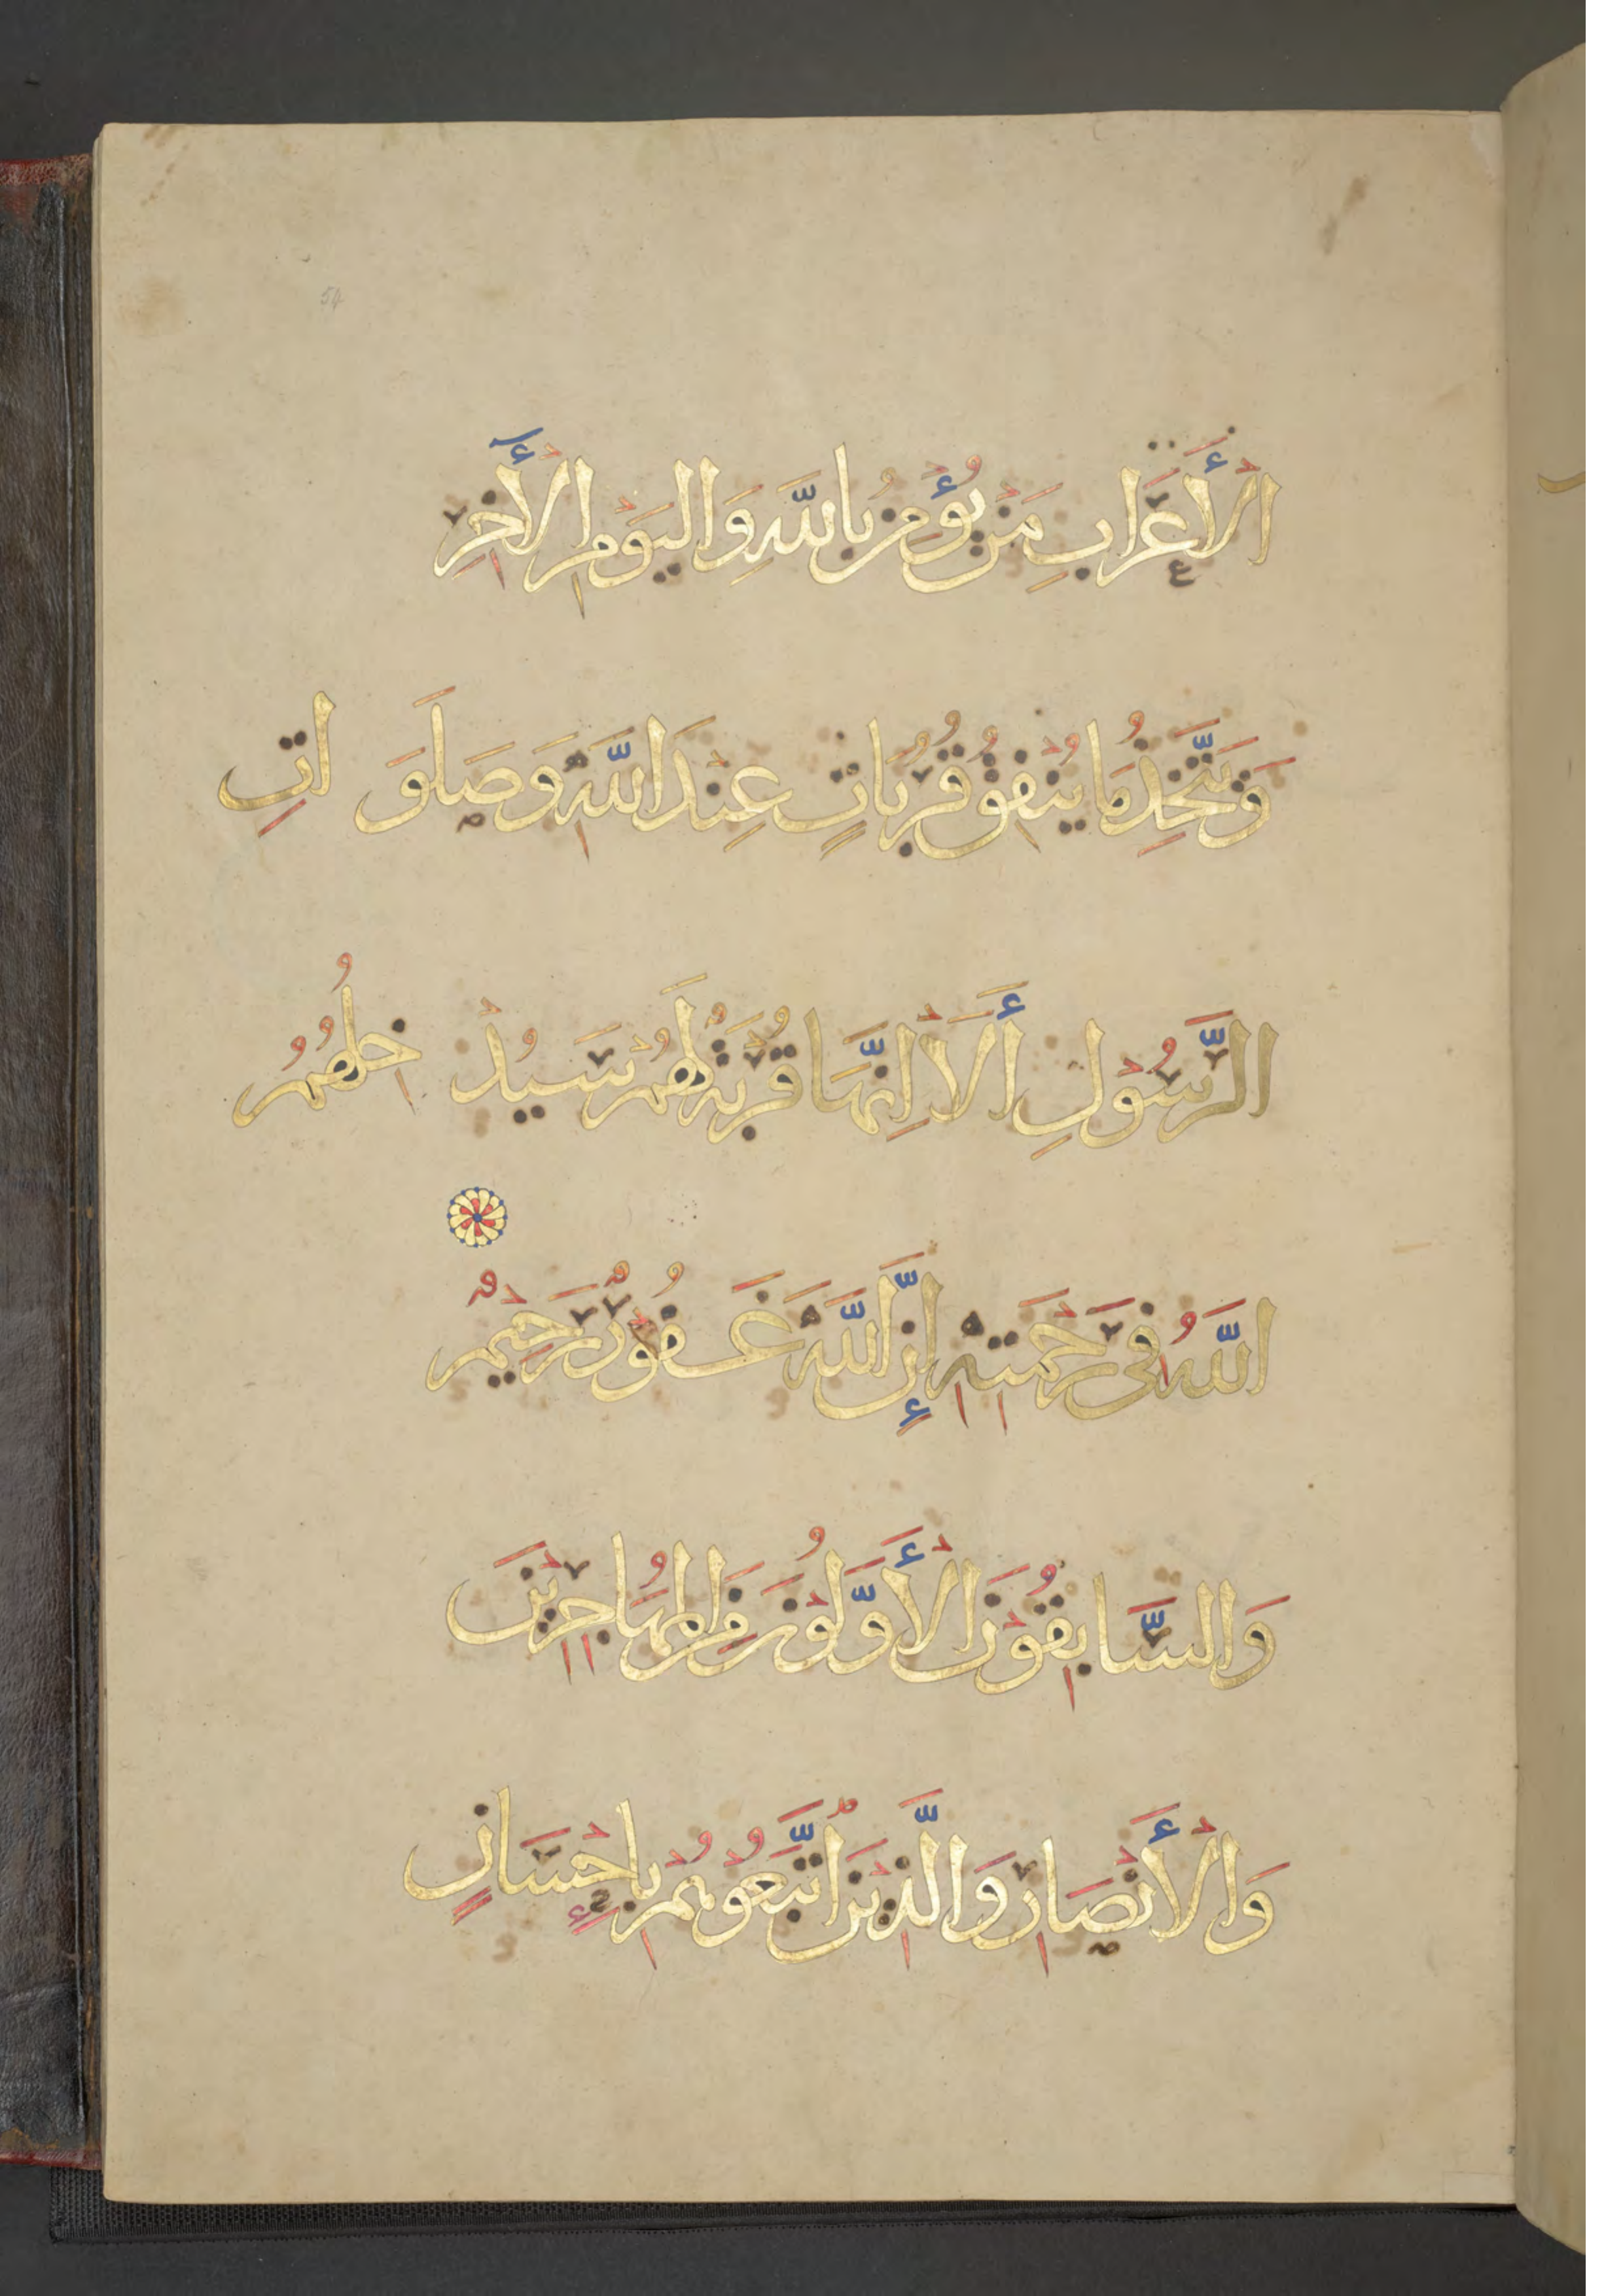 52
الْأَعْرَابِ مَنْ يُؤْمِنُ بِاللَّهِ وَالْيَوْمِ الْأَخِرِ
وَيَتَّخِذُ مَا يُنْفِقُ قُرُبَاتٍ عِنْدَ اللَّهِ وَصَلَوَاتِ
الرَّسُولِ أَلَا إِنَّهَا قُرْبَةٌ لَهُمْ سَيُدْخِلُهُمُ
اللَّهُ فِي رَحْمَتِهِ إِنَّ اللَّهَ غَفُورٌ رَحِيمٌ
وَالسَّابِقُونَ الْأَوَّلُونَ مِنَ الْمُهَاجِرِينَ
وَالْأَنْصَارِ وَالَّذِينَ اتَّبَعُوهُمْ بِإِحْسَانٍ